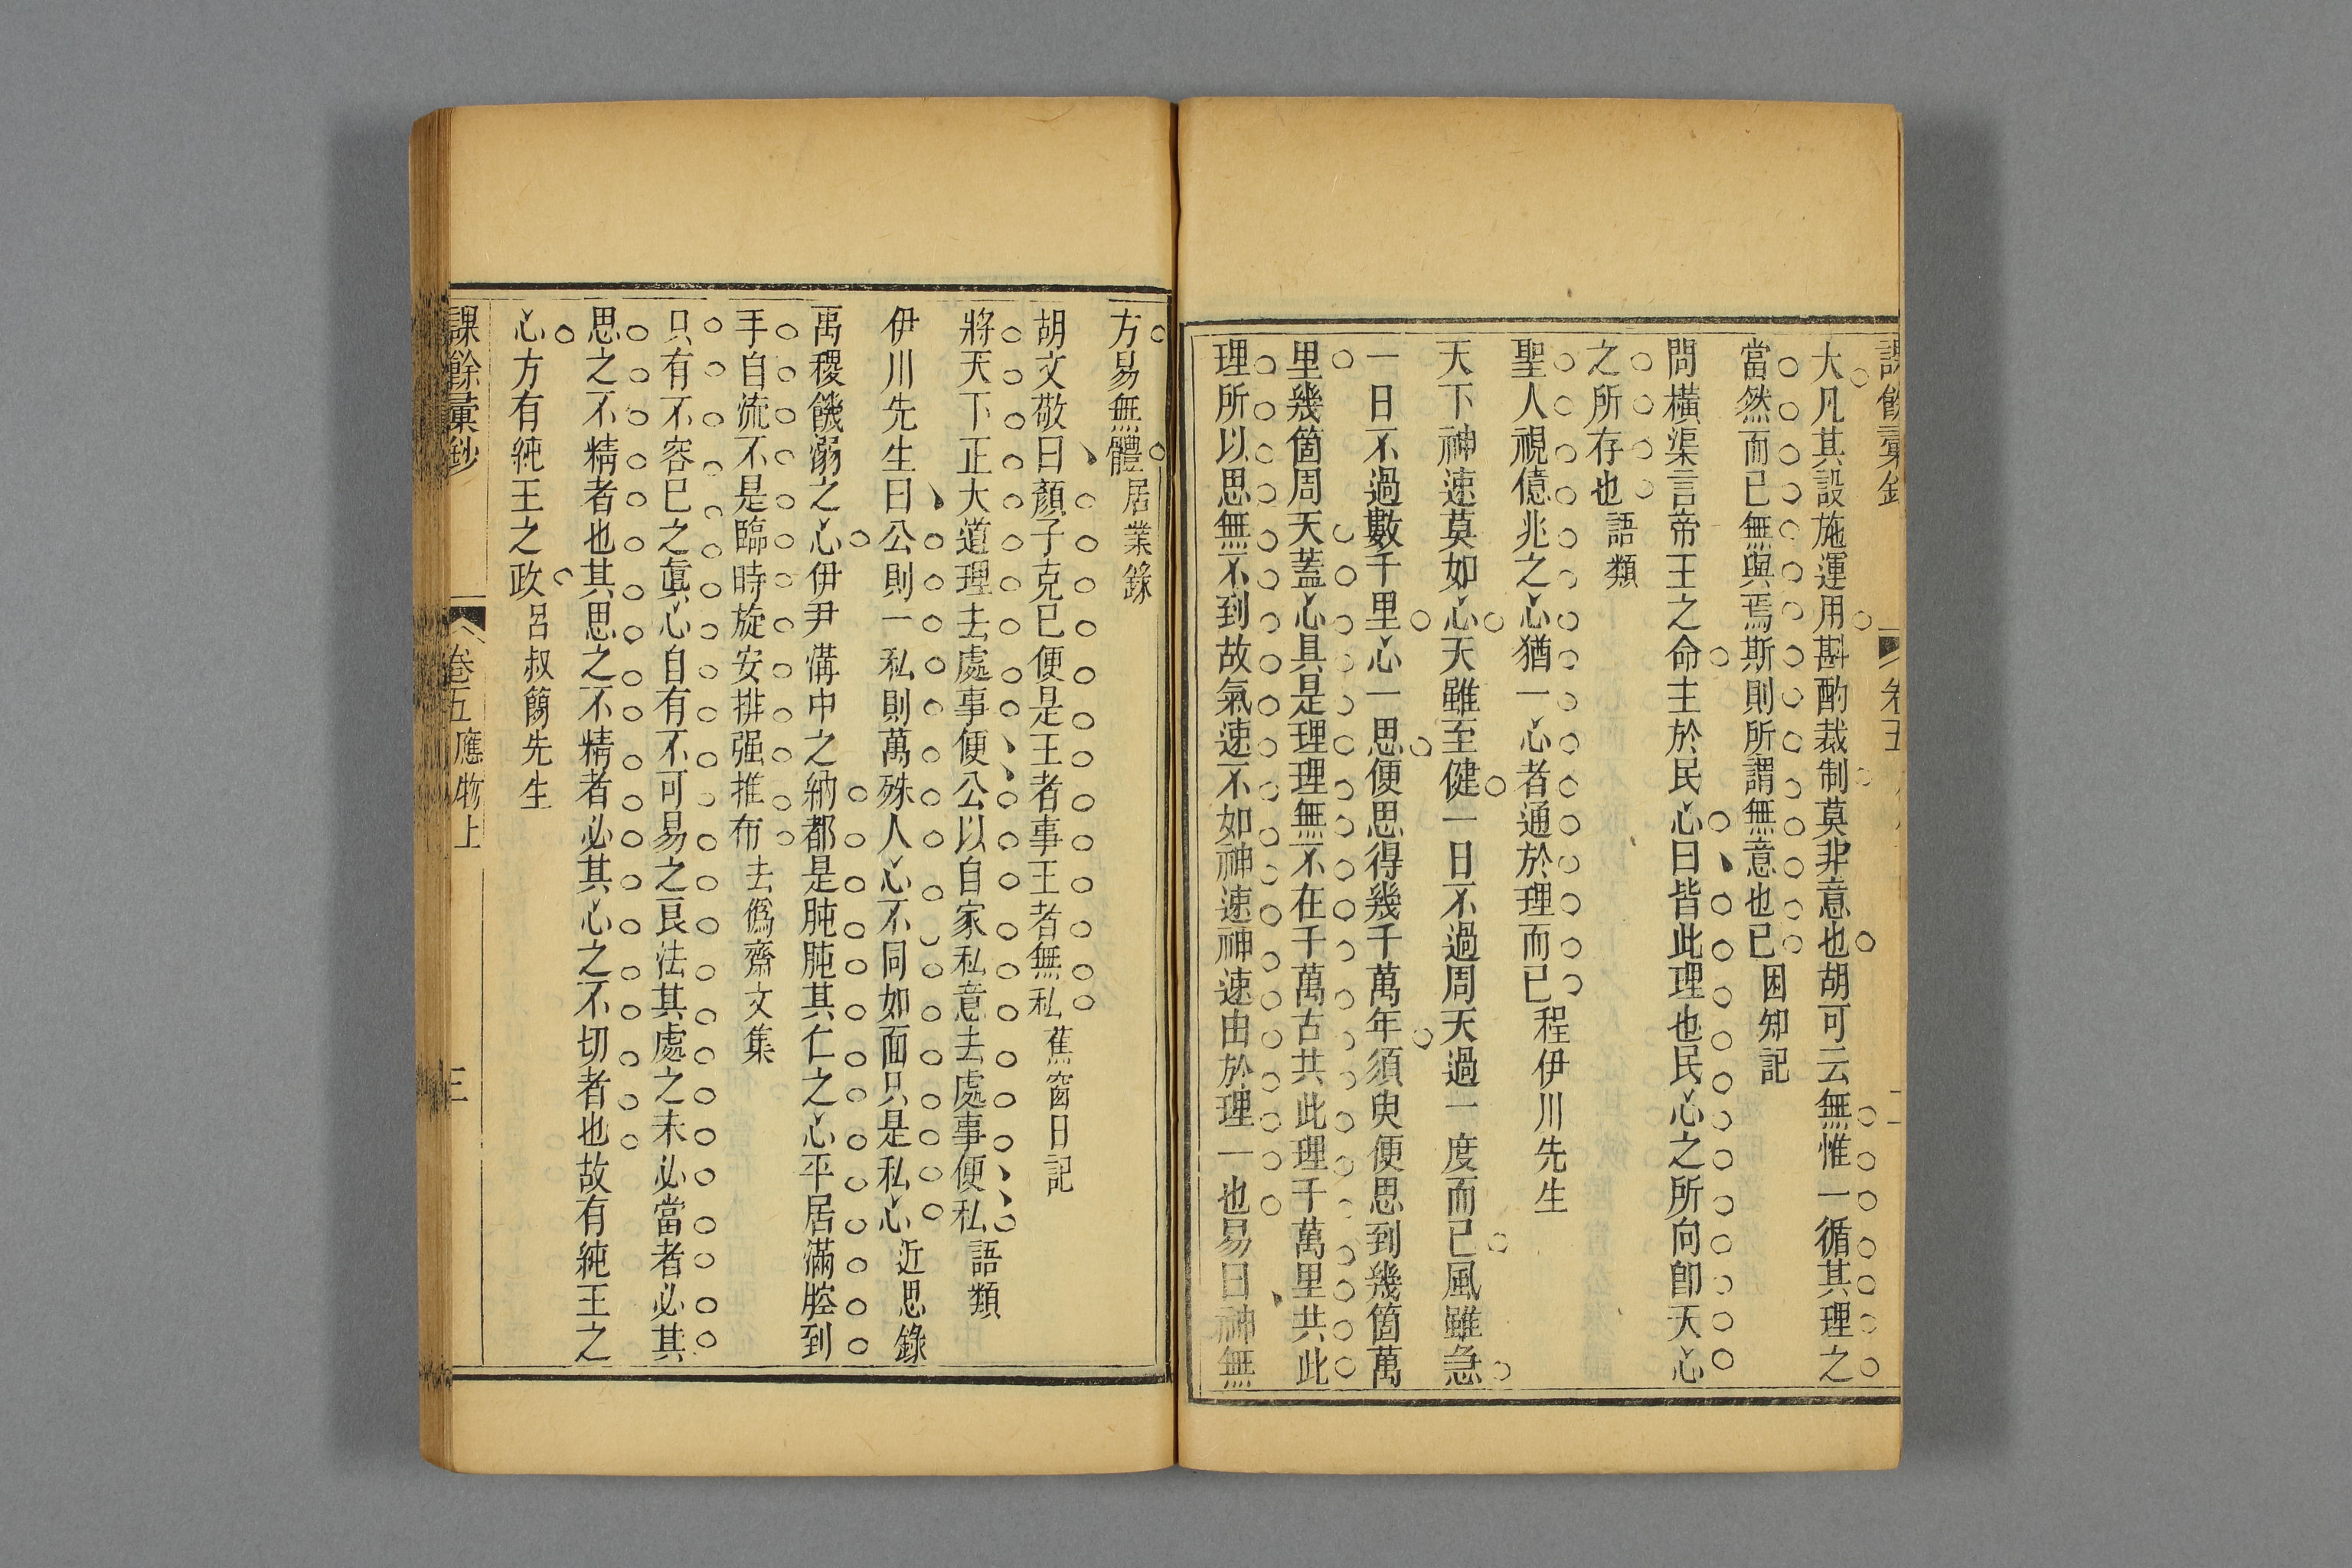 課餘彙鈔 卷五 二
大凡其設施運用斟酌裁制莫非意也胡可云無惟一循其理之
當然而已無與焉斯則所謂無意也已 困知記
問橫渠言帝王之命主於民心曰皆此理也民心之所向卽天心
之所存也 語類
聖人視億兆之心猶一心者通於理而已 程伊川先生
天下神速莫如心天雖至健一日不過周天過一度而已風雖急
一日不過數千里心一思便思得幾千萬年須臾便思到幾箇萬
里幾箇周天蓋心具是理理無不在千萬古共此理千萬里共此
理所以思無不到故氣速不如神速神速由於理一也易曰神無
方易無體 居業錄
胡文敬曰顏子克已便是王者事王者無私 蕉窗日記
將天下正大道理去處事便公以自家私意去處事便私 語類
伊川先生曰公則一私則萬殊人心不同如面只是私心 近思錄
禹稷饑溺之心伊尹溝中之納都是肫肫其仁之心平居滿腔到
手自流不是臨時旋安排强推布 去僞齋文集
只有不容已之眞心自有不可易之良法其處之未必當者必其
思之不精者也其思之不精者必其心之不切者也故有純王之
心方有純王之政 呂叔簡先生
課餘彙鈔 卷五 應物上 三